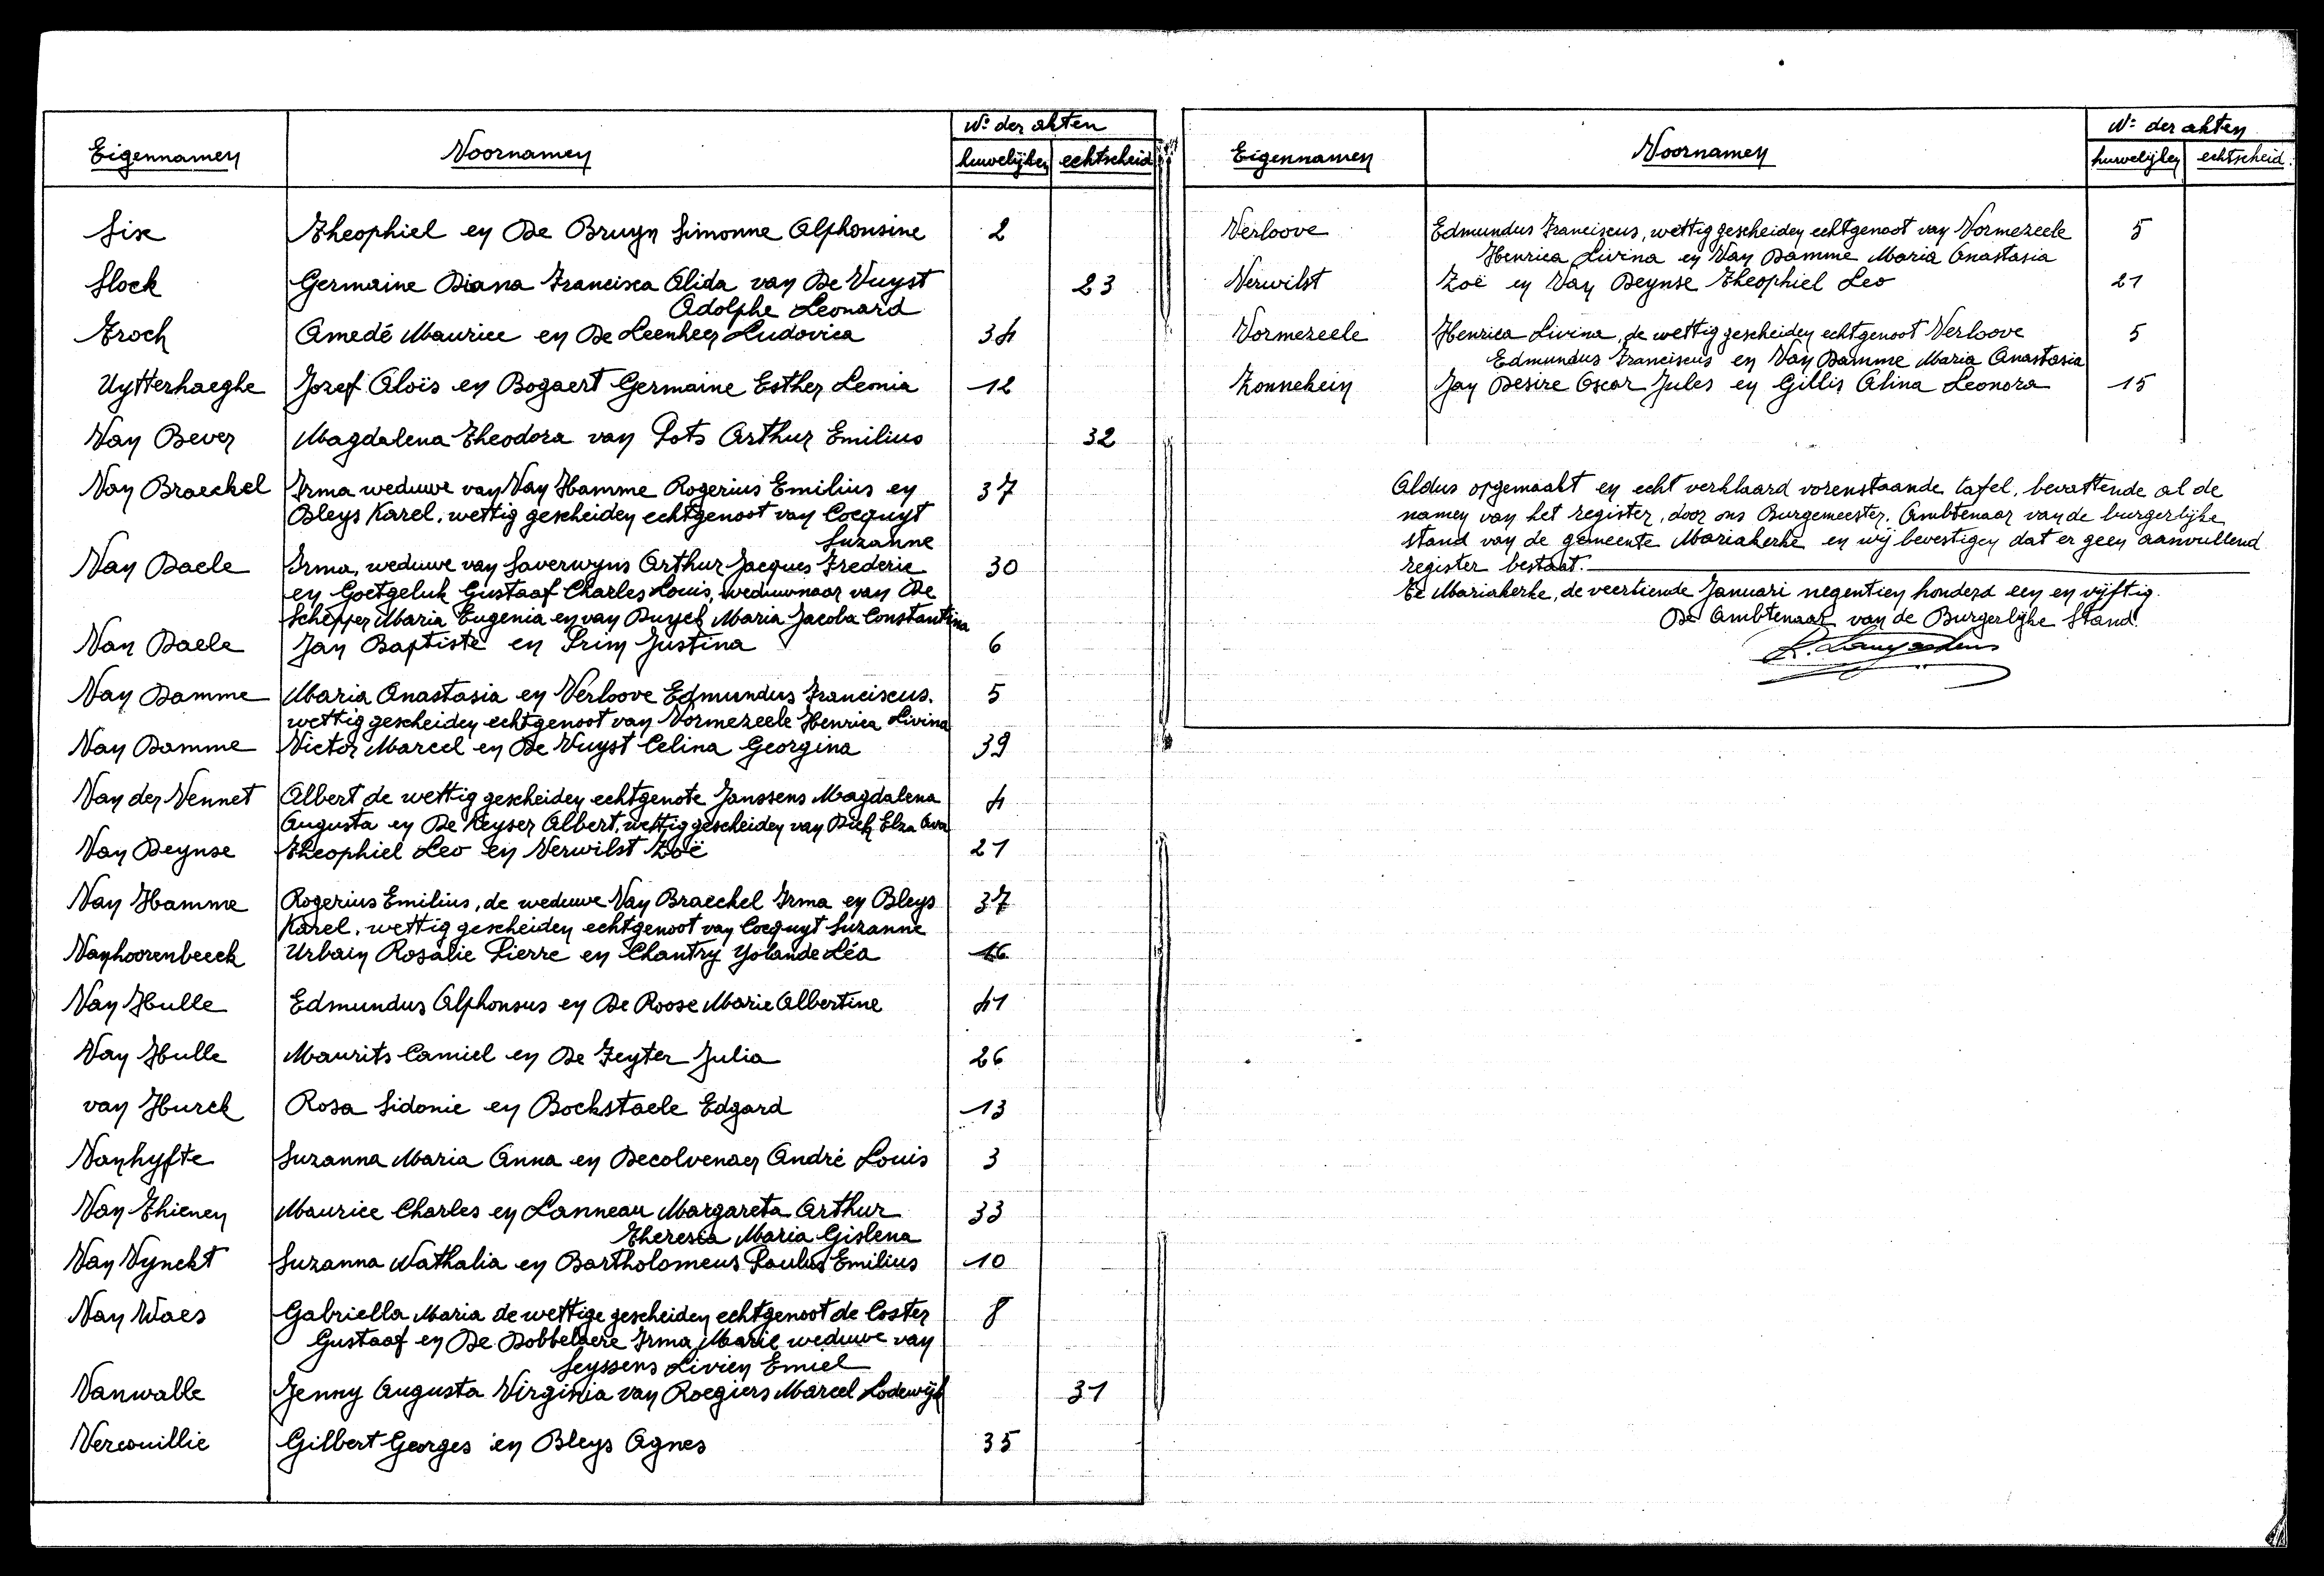 Eigennamen Voornamen N° der akten
huwelijken echtscheid
Sise Theophiel en De Bruyn Simonne Alphonsine 2
Slock Germaine Diana Francisca Alida van De Vuyst 23
Adolphe Leonard
Troch Amedé Maurice en De Leenheer Ludovica 34
Uytterhaeghe Jozef Aloïs en Bogaert Germaine Esther Leonia 12
Van Bever Magdalena Theodora van Pots Arthur Emilius 32
Van Braeckel Irma weduwe van Van Hamme Rogerius Emilius en 37
Bleys Karel, wettig gescheiden echtgenoot van Cocquyt
Suzanne
Van Daele Irma, weduwe van Saverwyns Arthur Jacques Frederic 30
en Goetgeluk Gustaaf Charles Louis, weduwnaar van De
Schepper Maria Eugenia en van Duysel Maria Jacoba Constantina
Van Daele Jan Baptiste en Prim Justina 6
Van Damme Maria Anastasia en Verloove Edmundus Franciscus. 5
wettig gescheiden echtgenoot van Vormezeele Henrica Livina
Van Damme Victor Marcel en De Vuyst Celina Georgina 39
Van der Vennet Albert de wettig gescheiden echtgenote Janssens Magdalena 4
Augusta en De Keyser Albert, wettig gescheiden van Dick Elza Ava
Van Deynse Theophiel Leo en Verwilst Zoë 21
Van Hamme Rogerius Emilius, de weduwe Van Braeckel Irma en Bleys 37
Karel, wettig gescheiden echtgenoot van Cocquyt Suzanne
Vanhoorenbeeck Urbain Rosalie Pierre en Chantry Yolande Léa 16
Van Hulle Edmundus Alphonsus en De Roose Marie Albertine 41
Van Hulle Maurits Camiel en De Feyter Julia 26
van Hurck Rosa Sidonie en Bockstaele Edgard 13
Vanhyfte Suzanna Maria Anna en Decolvenaer André Louis 3
Van Thienen Maurice Charles en Lanneau Margareta Arthur 33
Theresia Maria Gislena
Van Vynckt Suzanna Nathalia en Bartholomeus Paulus Emilius 10
Van Waes Gabriella Maria de wettige gescheiden echtgenoot de Coster 8
Gustaaf en De Dobbelaere Irma Marie weduwe van
Seyssens Livien Emiel
Vanwalle Jenny Augusta Virginia van Roegiers Marcel Lodewijk 31
Vercouillie Gilbert Georges en Bleys Agnes 35
Eigennamen Voornamen N° der akten
huwelijken echtscheid.
Verloove Edmundus Franciscus, wettig gescheiden echtgenoot van Vormezeele 5
Henrica Livina en Van Damme Maria Anastasia
Verwilst Zoë en Van Deynse Theophiel Leo 21
Vormezeele Henrica Livina, de wettig gescheiden echtgenoot Verloove 5
Edmundus Franciscus en Van Damme Maria Anastasia
Zonnekein Jan Desire Oscar Jules en Gillis Alina Leonora 15
Aldus opgemaakt en echt verklaard vorenstaande tafel, bevattende al de
namen van het register, door ons Burgemeester. Ambtenaar van de burgerlijke
stand van de gemeente Mariakerke en wij bevestigen dat er geen aanvullend
register bestaat.
Te Mariakerke, de veertiende Januari negentien honderd een en vijftig.
De Ambtenaar van de Burgerlijke Stand.